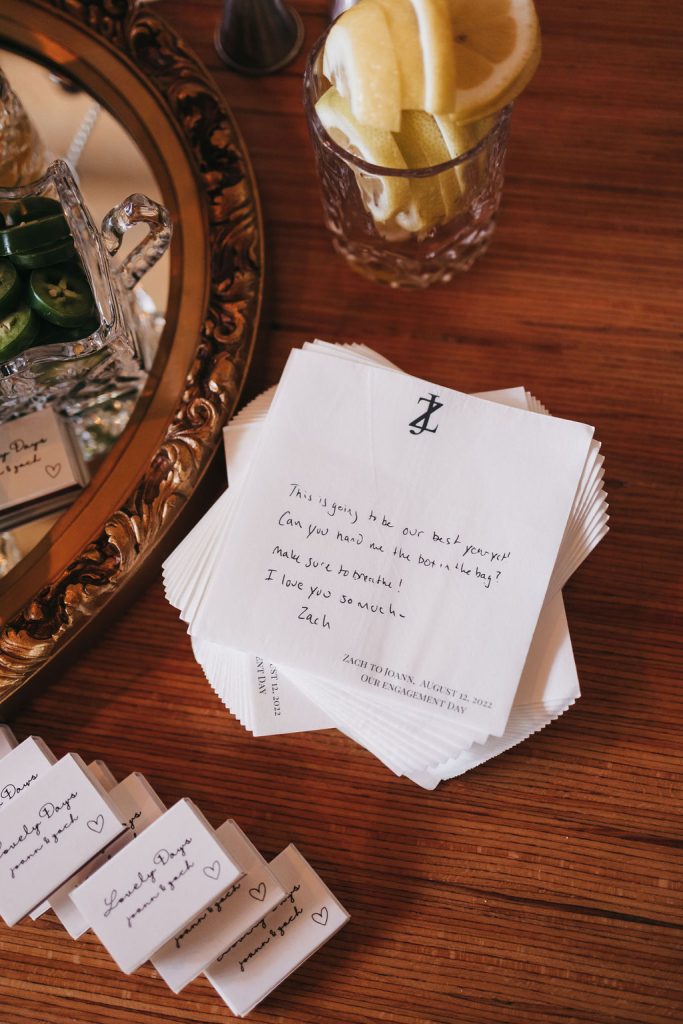 Days
& zach
ZJ
This is going to be our best year yet!
Can you hand me the box in the bag?
make sure to breathe!
I love you so much-
Zach
ZACH TO JOANN, AUGUST 12, 2022
OUR ENGAGEMENT DAY
ST 12, 2022
EMENT DAY
Days
Lovely Days
joann & zach
Lovely Days
joann & zach
joann & zach
Days
joann & zach